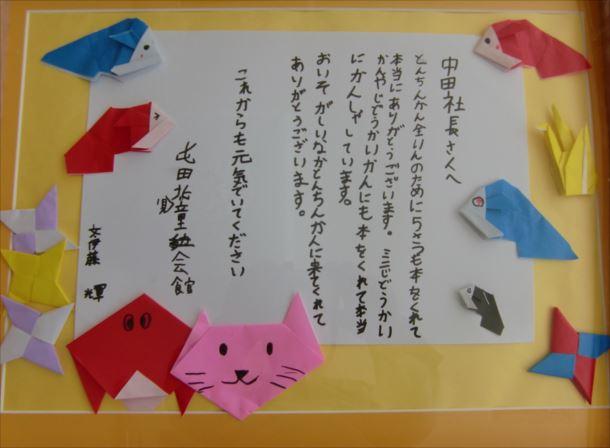 中田社長さんへ
とんちんかん全いんのために5さつも本をくれて
本当にありがとうございます。ミニじどうかい
かんやじどうかいかんにも本をくれて本当
にかんしゃしています。
おいそがしいなかとんちんかんに来てくれて
ありがとうございます。
これからも元気でいてください
屯田北児童会館
文伊藤 輝